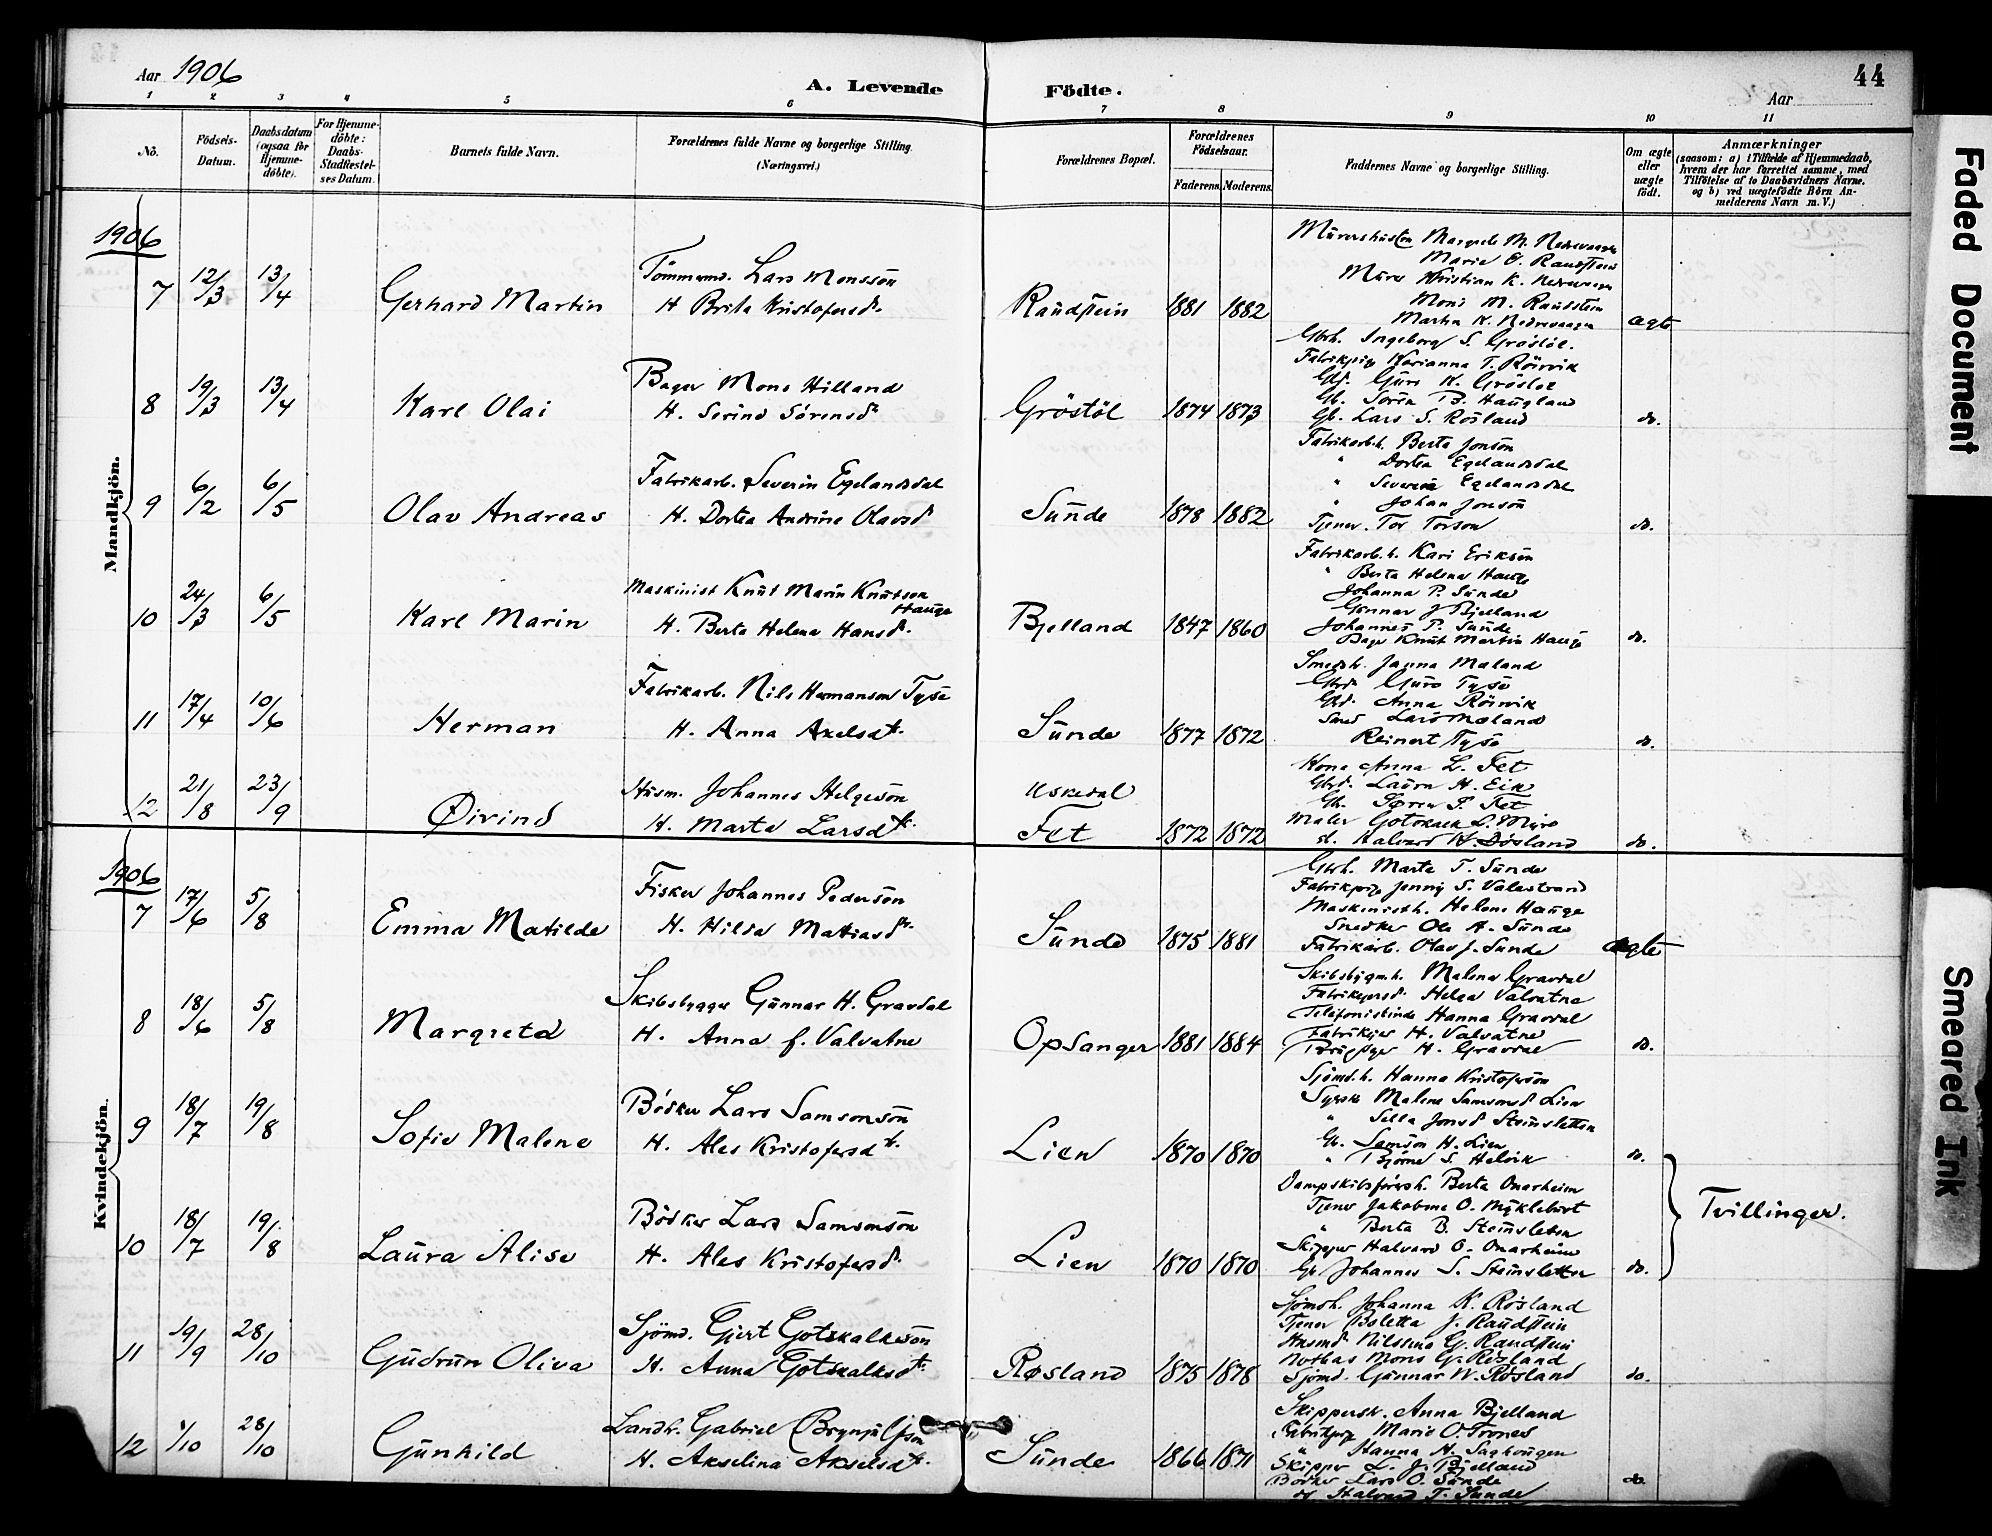 44
Aar 1906
A. Levende Födte.
Aar
1 2 3 4 5 6 7 8 9 10 11
No. Födsels-Datum. Daabsdatum (ogsaa for Hjemmedöbte). For Hjemmedöbte: Daabs-Stadfæstelses Datum. Barnets fulde Navn. Forældrenes fulde Navne og borgerlige Stilling. (Næringsvei.) Forældrenes Bopæl. Forældrenes Födselsaar. Faderens. Moderens. Faddernes Navne og borgerlige Stilling. Om ægte eller uægte födt. Anmærkninger (saasom: a) i Tilfælde af Hjemmedaab, hvem der har forrettet samme, med Tilföielse af to Daabsvidners Navne, og b) ved uægtefödte Börn Anmelderens Navn m. V.)
Mandkjön.
1906
7 12/3 13/4 Gerhard Martin Tömmermd. Lars Monsson
H. Brita Kristofersdr. Raudstein 1881 1882 ægte
Marie O. Raudstein
Murer Kristian K. Nedrevaage
Mons M. Raudstein
Martin K. Nedrevaage
8 19/3 13/4 Karl Olai Bager Mons Hilland
H. Serine Sörensdr Gröstöl 1874 1873 do.
Gbrh. Ingeborg S. Gröstöl.
Fabrikpige Marianna T. Röirvik
Gbd. Guro K. Gröstöl
Gb. Sören B. Haugland
Gb. Lars S. Rösland
9 6/2 6/5 Olav Andreas Fabrikarb. Severin Egelandsdal
H. Dortea Andrine Olavsdr Sunde 1878 1882 do.
Fabrikarb.h. Berta Jonson
" Dortea Egelandsdal
" Severin Egelandsdal
" Johan Jonson
Tjener. Tor Torson
10 24/3 6/5 Karl Marin Maskinist Knut Marin Knutson Hauge
H. Berta Helena Hansdr. Bjelland 1847 1860 do.
Fabrikarb.h. Kari Erikson
" Berta Helena Hauge
Johanna P. Sunde
Gunnar J Bjelland
Johannes P. Sunde
Bager Knut Martin Hauge
11 17/4 10/6 Herman Fabrikarb. Nils Hermanson Tyse
H. Anna Axelsdtr. Sunde 1877 1872 do.
Smedh. Janna Maland
Gbrd. Guro Tyse
Gbd. Anna Röirvik
Smed Lars Mæland
Reinert Tyse
12 21/8 23/9 Øivind Husm. Johannes Helgeson
H. Marta Larsdtr. Uskedal
Fet 1872 1872 do.
Kona Anna L. Fet
Gbrd. Laura H. Eik
Gb. Sören S. Fet
Maler Gotskalk L. Myre
d. Halvard H. Døsland
Kvindekjön.
1906
7 17/6 5/8 Emma Matilde Fisker Johannes Pederson
H. Hilda Matiasdtr. Sunde 1875 1881 ægte
Gbrh. Marta T. Sunde
Fabrikpige Jenny S. Valestrand
Maskinisth. Helene Hauge
Snedker Ole A. Sunde
Fabrikarb. Olav J. Sunde
8 18/6 5/8 Margreta Skibsbygger Gunnar H. Gravdal
H. Anna f. Valvatne Opsanger 1881 1884 do.
Skibsbygm.h. Malena Gravdal
Helga Valvatne
Telefonistinde Hanna Gravdal
Fabrikejer H. Valvatne
H. Gravdal
9 18/7 19/8 Sofie Malene Bödker Lars Samsonson
H. Ales Kristofersdtr. Lien 1870 1870 do.
Sjömd.h. Hanna Kristoferson
Syerske Malene Samsonsd Lien
" Sella Jonsd Steinsletten
Gb. Samson H. Lien
" Björne S. Helvik
10 18/7 19/8 Laura Alise Bödker Lars Samsonson
H. Ales Kristofersdr. Lien 1870 1870 do. Tvillinger.
Dampskibsförersh. Berta Onarheim
Tjener Jakobine O. Myklebust
" Berta B. Steinsletten
Skipper Halvard O. Onarheim
Gb. Johannes S. Steinsletten
11 19/9 28/10 Gudrun Oliva Sjömd. Gjert Gotskalkson
H. Anna Gotskalksdtr. Røsland 1875 1878 do.
Sjömdh. Johanna K. Rösland
Tjener Boletta J. Raudstein
Husmd. Nilsine G. Raudstein
Mons G. Rösland
Sjömd. Gunnar W. Rösland
12 1/10 28/10 Gunhild Landh. Gabriel Brynjulfson
H. Akselina Akselsdtr. Sunde 1866 1871 do.
Skippersk. Anna Bjelland
Fabrikpige Marie O. Tvones
" Hanna H. Saghougen
Skipper L. J. Bjelland
Bödker Lars O. Sunde
og Halvard T. Sunde
Faded Document
Smeared Ink